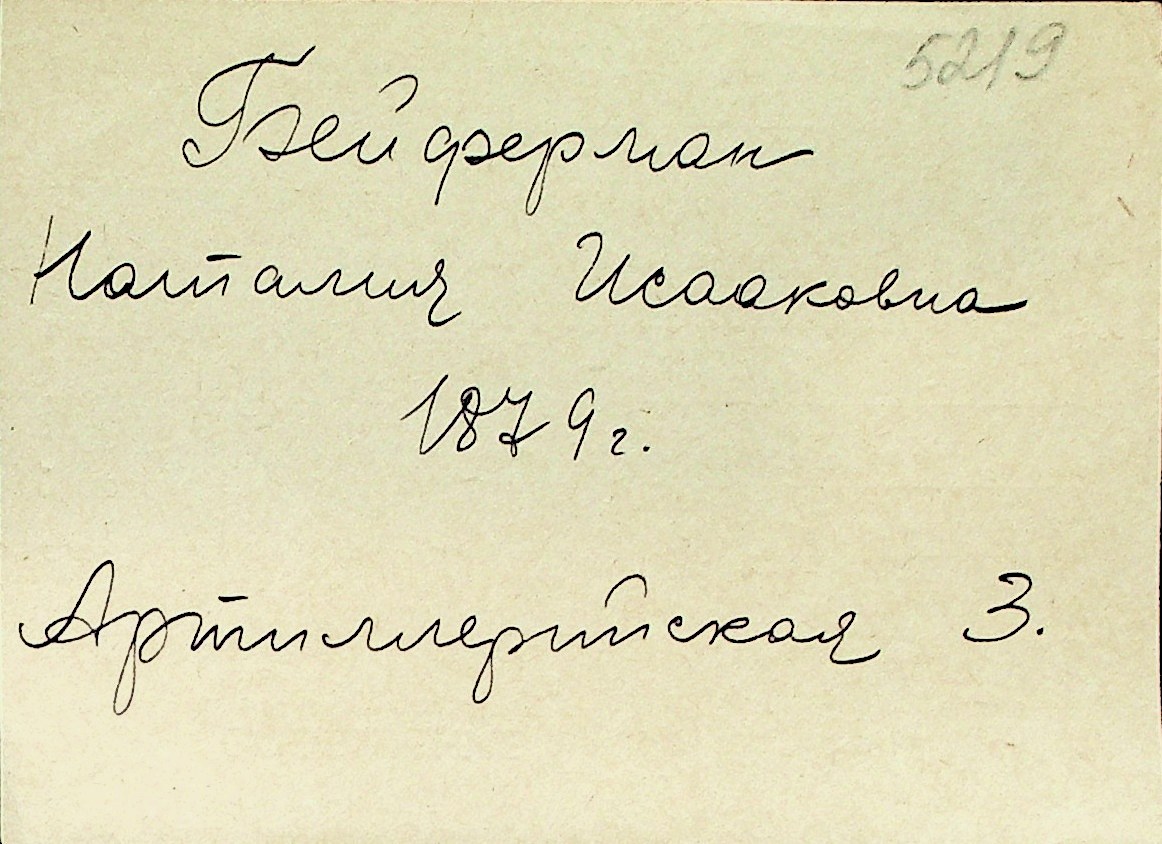 5219
Бейферман
Наталия Исааковна
1879 г.
Артиллерийская 3.